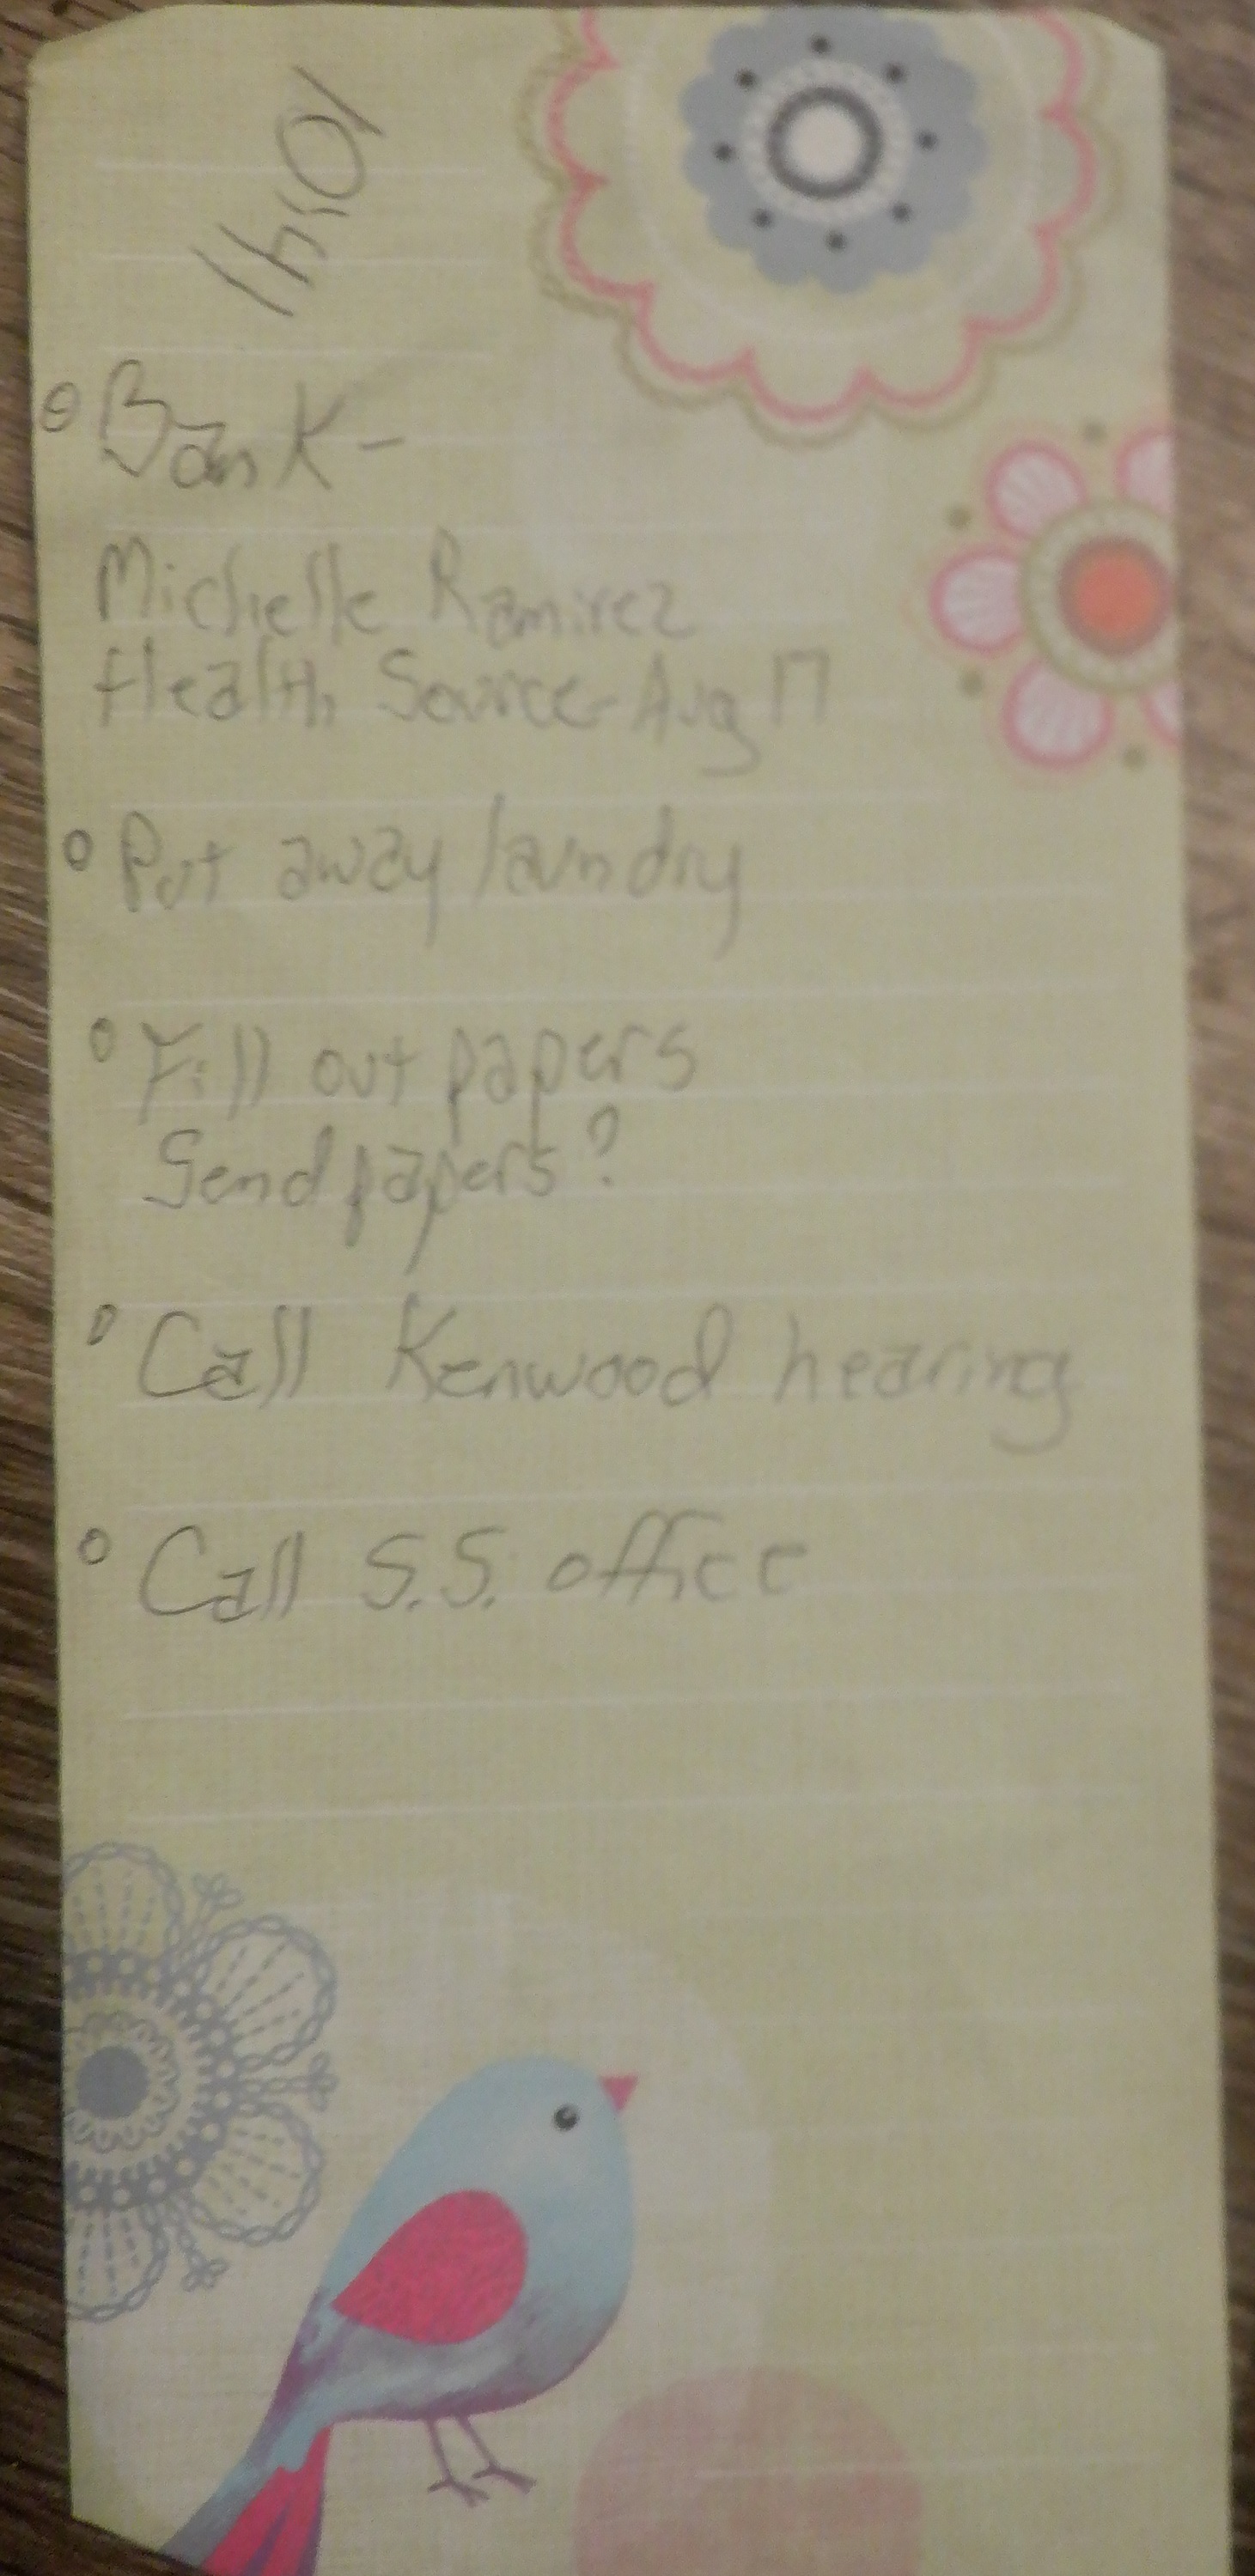 10:41
Bank -
Michelle Ramirez
Health Source-Aug 17
Put away laundry
Fill out papers
Send papers?
Call Kenwood hearing
Call S.S. office